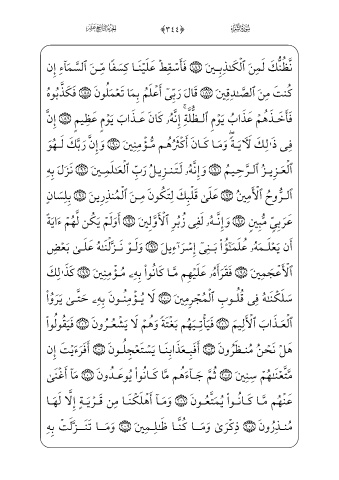 سُورَةُ الشُّعَرَاءِ ﴿٣٤٤﴾ الجُزْءُ التَّاسِعَ عَشَرَ
نَّظُنُّكَ لَمِنَ ٱلْكَـٰذِبِينَ ١٨٦ فَأَسْقِطْ عَلَيْنَا كِسَفًا مِّنَ ٱلسَّمَآءِ إِن
كُنتَ مِنَ ٱلصَّـٰدِقِينَ ١٨٧ قَالَ رَبِّىٓ أَعْلَمُ بِمَا تَعْمَلُونَ ١٨٨ فَكَذَّبُوهُ
فَأَخَذَهُمْ عَذَابُ يَوْمِ ٱلظُّلَّةِ ۚ إِنَّهُۥ كَانَ عَذَابَ يَوْمٍ عَظِيمٍ ١٨٩ إِنَّ
فِى ذَٰلِكَ لَـَٔايَةً ۖ وَمَا كَانَ أَكْثَرُهُم مُّؤْمِنِينَ ١٩٠ وَإِنَّ رَبَّكَ لَهُوَ
ٱلْعَزِيزُ ٱلرَّحِيمُ ١٩١ وَإِنَّهُۥ لَتَنزِيلُ رَبِّ ٱلْعَـٰلَمِينَ ١٩٢ نَزَلَ بِهِ
ٱلرُّوحُ ٱلْأَمِينُ ١٩٣ عَلَىٰ قَلْبِكَ لِتَكُونَ مِنَ ٱلْمُنذِرِينَ ١٩٤ بِلِسَانٍ
عَرَبِىٍّ مُّبِينٍ ١٩٥ وَإِنَّهُۥ لَفِى زُبُرِ ٱلْأَوَّلِينَ ١٩٦ أَوَلَمْ يَكُن لَّهُمْ ءَايَةً
أَن يَعْلَمَهُۥ عُلَمَـٰٓؤُا۟ بَنِىٓ إِسْرَٰٓءِيلَ ١٩٧ وَلَوْ نَزَّلْنَـٰهُ عَلَىٰ بَعْضِ
ٱلْأَعْجَمِينَ ١٩٨ فَقَرَأَهُۥ عَلَيْهِم مَّا كَانُوا۟ بِهِۦ مُؤْمِنِينَ ١٩٩ كَذَٰلِكَ
سَلَكْنَـٰهُ فِى قُلُوبِ ٱلْمُجْرِمِينَ ٢٠٠ لَا يُؤْمِنُونَ بِهِۦ حَتَّىٰ يَرَوُا۟
ٱلْعَذَابَ ٱلْأَلِيمَ ٢٠١ فَيَأْتِيَهُم بَغْتَةً وَهُمْ لَا يَشْعُرُونَ ٢٠٢ فَيَقُولُوا۟
هَلْ نَحْنُ مُنظَرُونَ ٢٠٣ أَفَبِعَذَابِنَا يَسْتَعْجِلُونَ ٢٠٤ أَفَرَءَيْتَ إِن
مَّتَّعْنَـٰهُمْ سِنِينَ ٢٠٥ ثُمَّ جَآءَهُم مَّا كَانُوا۟ يُوعَدُونَ ٢٠٦ مَآ أَغْنَىٰ
عَنْهُم مَّا كَانُوا۟ يُمَتَّعُونَ ٢٠٧ وَمَآ أَهْلَكْنَا مِن قَرْيَةٍ إِلَّا لَهَا
مُنذِرُونَ ٢٠٨ ذِكْرَىٰ وَمَا كُنَّا ظَـٰلِمِينَ ٢٠٩ وَمَا تَنَزَّلَتْ بِهِ